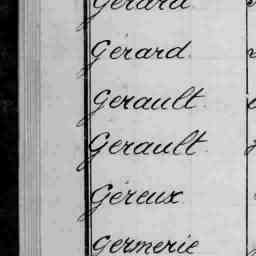 Gérard
Gérard
Gerault
Gerault
Géreux
Germerie